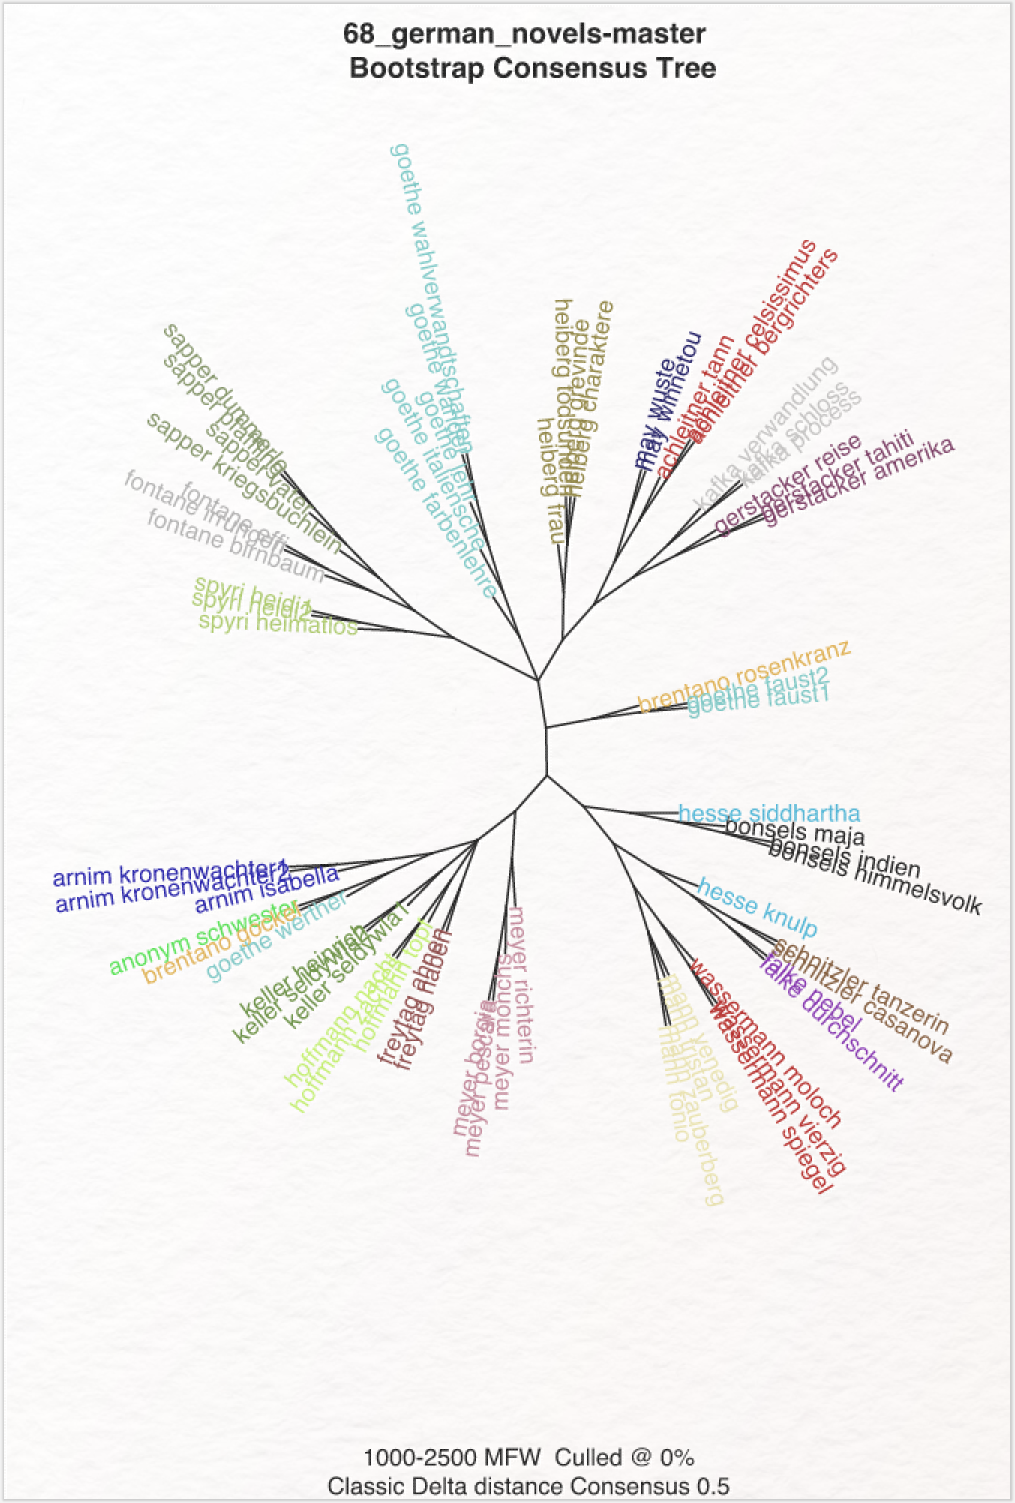 68_german_novels-master
Bootstrap Consensus Tree
goethe wahlverwandtschaften
goethe wander
goethe lehr
goethe italienische
goethe farbenlehre
heiberg todsunden
heiberg charaktere
heiberg frau
may wuste
may winnetou
achleitner tann
achleitner celsissimus
achleitner bergrichters
kafka verwandlung
kafka schloss
kafka process
gerstacker reise
gerstacker tahiti
gerstacker amerika
sapper dummerle
sapper pfaffling
sapper vater
sapper kriegsbuchlein
fontane effi
fontane irrungen
fontane birnbaum
spyri heidi1
spyri heidi2
spyri heimatlos
brentano rosenkranz
goethe faust2
goethe faust1
hesse siddhartha
bonsels maja
bonsels indien
bonsels himmelsvolk
hesse knulp
schnitzler tanzerin
schnitzler casanova
falke nebel
falke durchschnitt
wassermann moloch
wassermann vierzig
wassermann spiegel
mann venedig
mann tristan
mann zauberberg
mann tonio
meyer richterin
meyer monchs
meyer pescara
meyer borgia
freytag ahnen
freytag haben
hoffmann topf
hoffmann nacht
keller seldwyla1
keller heinrich
goethe werther
brentano gockel
anonym schwester
arnim isabella
arnim kronenwachter2
arnim kronenwachter1
1000-2500 MFW Culled @ 0%
Classic Delta distance Consensus 0.5